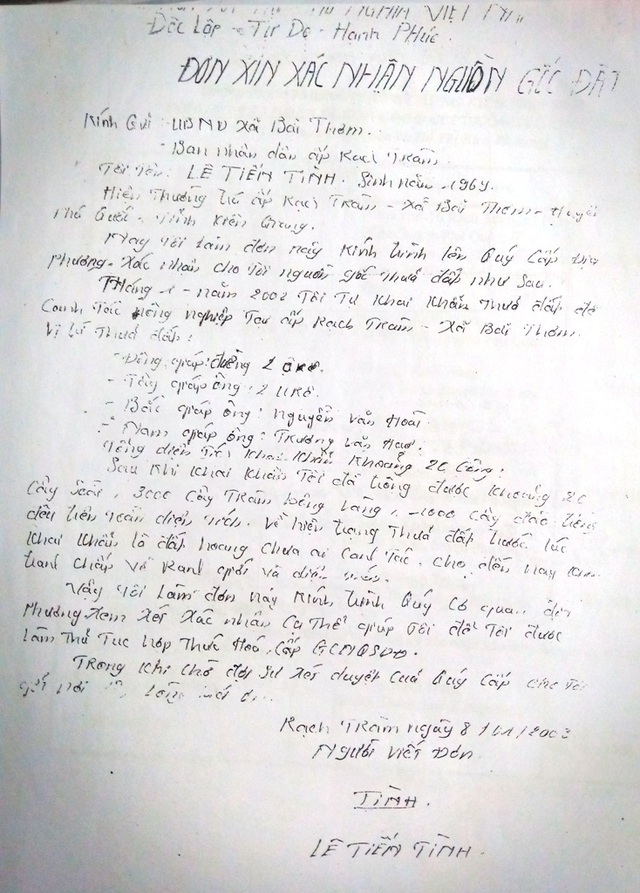 NGHĨA VIỆT NAM
Độc Lập - Tự Do - Hạnh Phúc.
ĐƠN XIN XÁC NHẬN NGUỒN GỐC ĐẤT
Kính Gửi: UBND Xã Bãi Thơm.
- Ban nhân dân ấp Rạch Tràm.
Tôi Tên: LÊ TIẾN TÌNH. Sinh năm - 1969.
Hiện Thường trú ấp Rạch Tràm - Xã Bãi Thơm - Huyện
Phú Quốc - Tỉnh Kiên Giang.
Nay tôi làm đơn này kính trình lên Quý Cấp Địa
Phương - Xác nhận cho Tôi nguồn gốc thửa đất như Sau.
Tháng - năm 2002 Tôi Tự Khai Khẩn thửa đất để
Canh Tác nông nghiệp Tại ấp Rạch Tràm - Xã Bãi Thơm.
Vị trí Thửa đất:
- Đông giáp: đường
- Tây giáp ông:
- Bắc giáp ông: Nguyễn Văn Hoài
- Nam giáp ông: Trương Văn
Tổng diện Tích Khai Khẩn Khoảng 20 Công.
Sau Khi Khai Khẩn Tôi đã trồng được Khoảng 20
Cây Xoài, 3000 Cây Tràm bông Vàng, -1000 Cây đào trồng
đều trên toàn diện tích. Về hiện trạng Thửa đất trước lúc
Khai Khẩn là đất hoang chưa ai Canh Tác. Cho đến nay không
tranh chấp về Ranh giới và diện tích.
Vậy Tôi Làm đơn này Kính trình Quý Cơ quan địa
Phương Xem Xét Xác nhận Cụ Thể giúp Tôi để Tôi được
Làm Thủ Tục hợp Thức Hoá, Cấp GCNQSDĐ.
Trong Khi Chờ đợi Sự Xét duyệt Của Quý Cấp cho Tôi
gửi nơi lòng biết ơn.
Rạch Tràm ngày 8/01/2003
Người Viết Đơn
TÌNH.
LÊ TIẾN TÌNH.